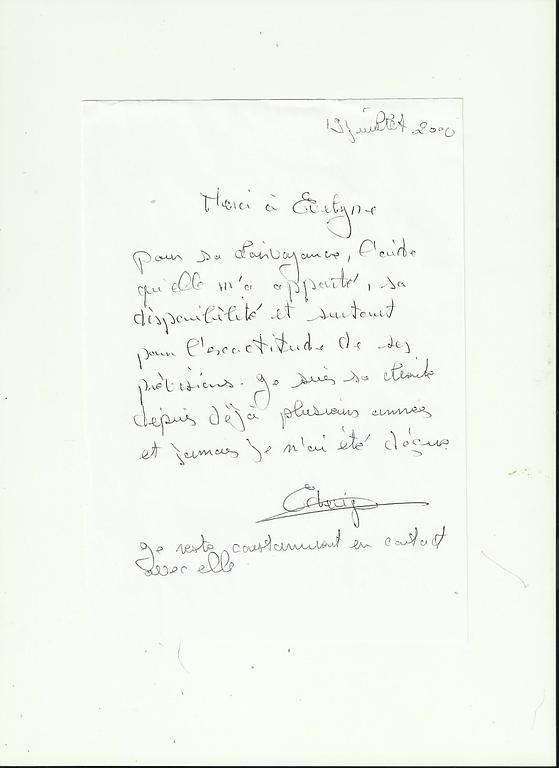 19 juillet 2000
Merci à Evelyne
pour sa clairvoyance, l'aide
qu'elle m'a apporté, sa
disponibilité et surtout
pour l'exactitude de ses
prévisions. Je suis sa cliente
depuis déjà plusieurs années
et jamais je n'ai été déçue
Je reste constamment en contact
avec elle